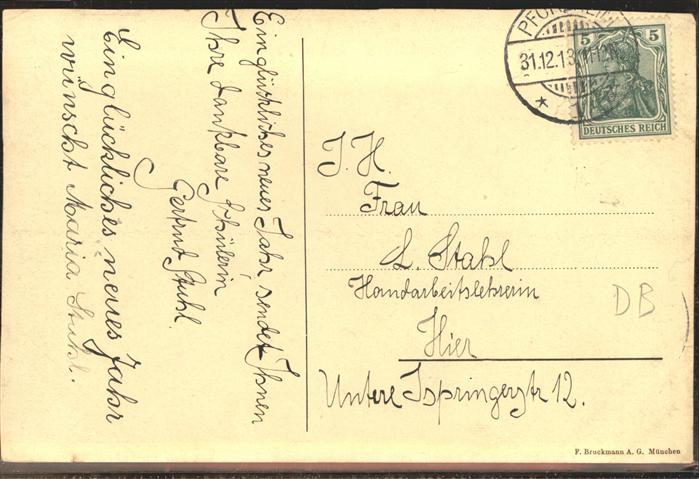 Ein glückliches neues Jahr sendet Ihnen
Ihre dankbare Schülerin
Gertrud Stuhl.
Ein glückliches neues Jahr
wünscht Maria Stuhl.
PFORZHEIM
31.12.13. 11-12
5 5
DEUTSCHES REICH
I. H.
Frau
L. Stahl
Handarbeitslehrerin
Hier
Untere Ispringerstr 12.
DB
F. Bruckmann A. G. München